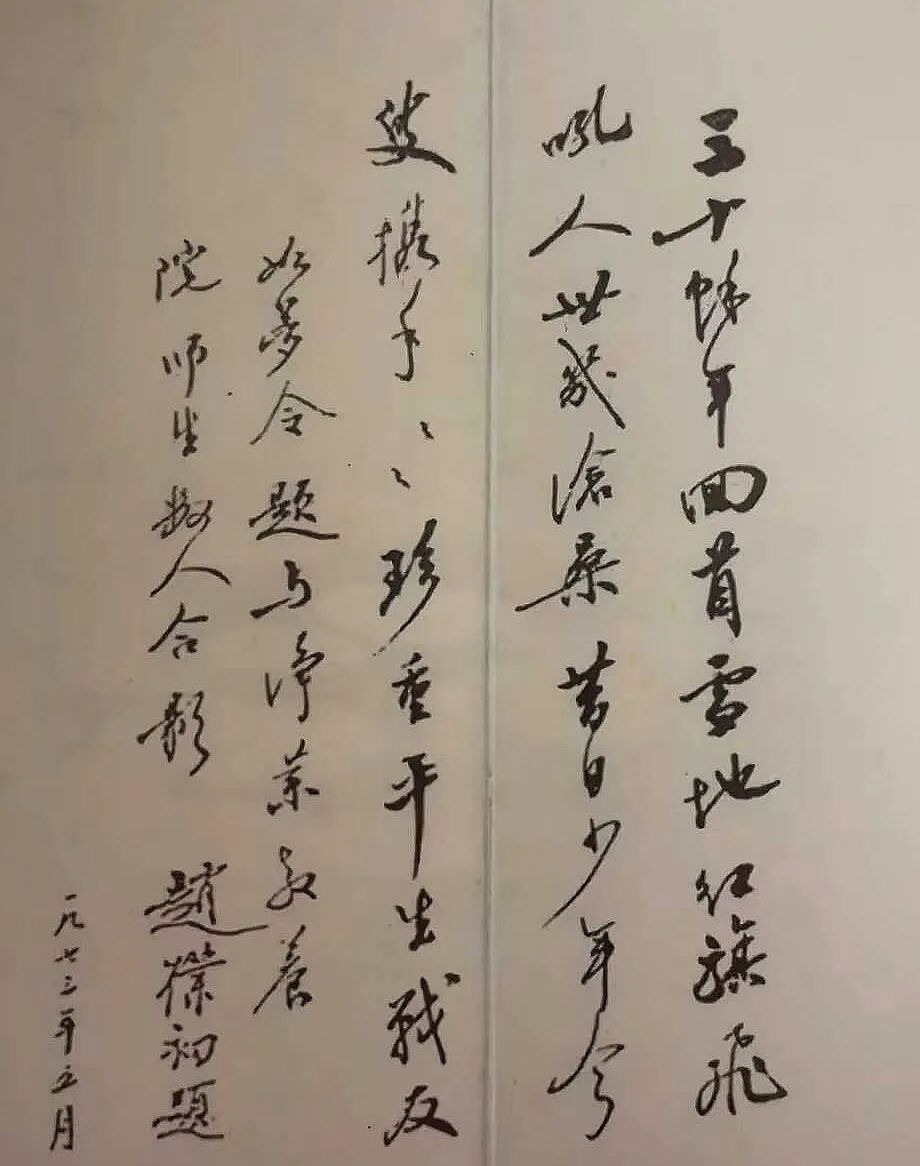 三十馀年回首雪地红旗飞
吼人世几沧桑昔日少年今
叟携手〻〻珍重平生战友
如梦令题与净业教养
院师生数人合影 赵朴初题
一九七三年五月